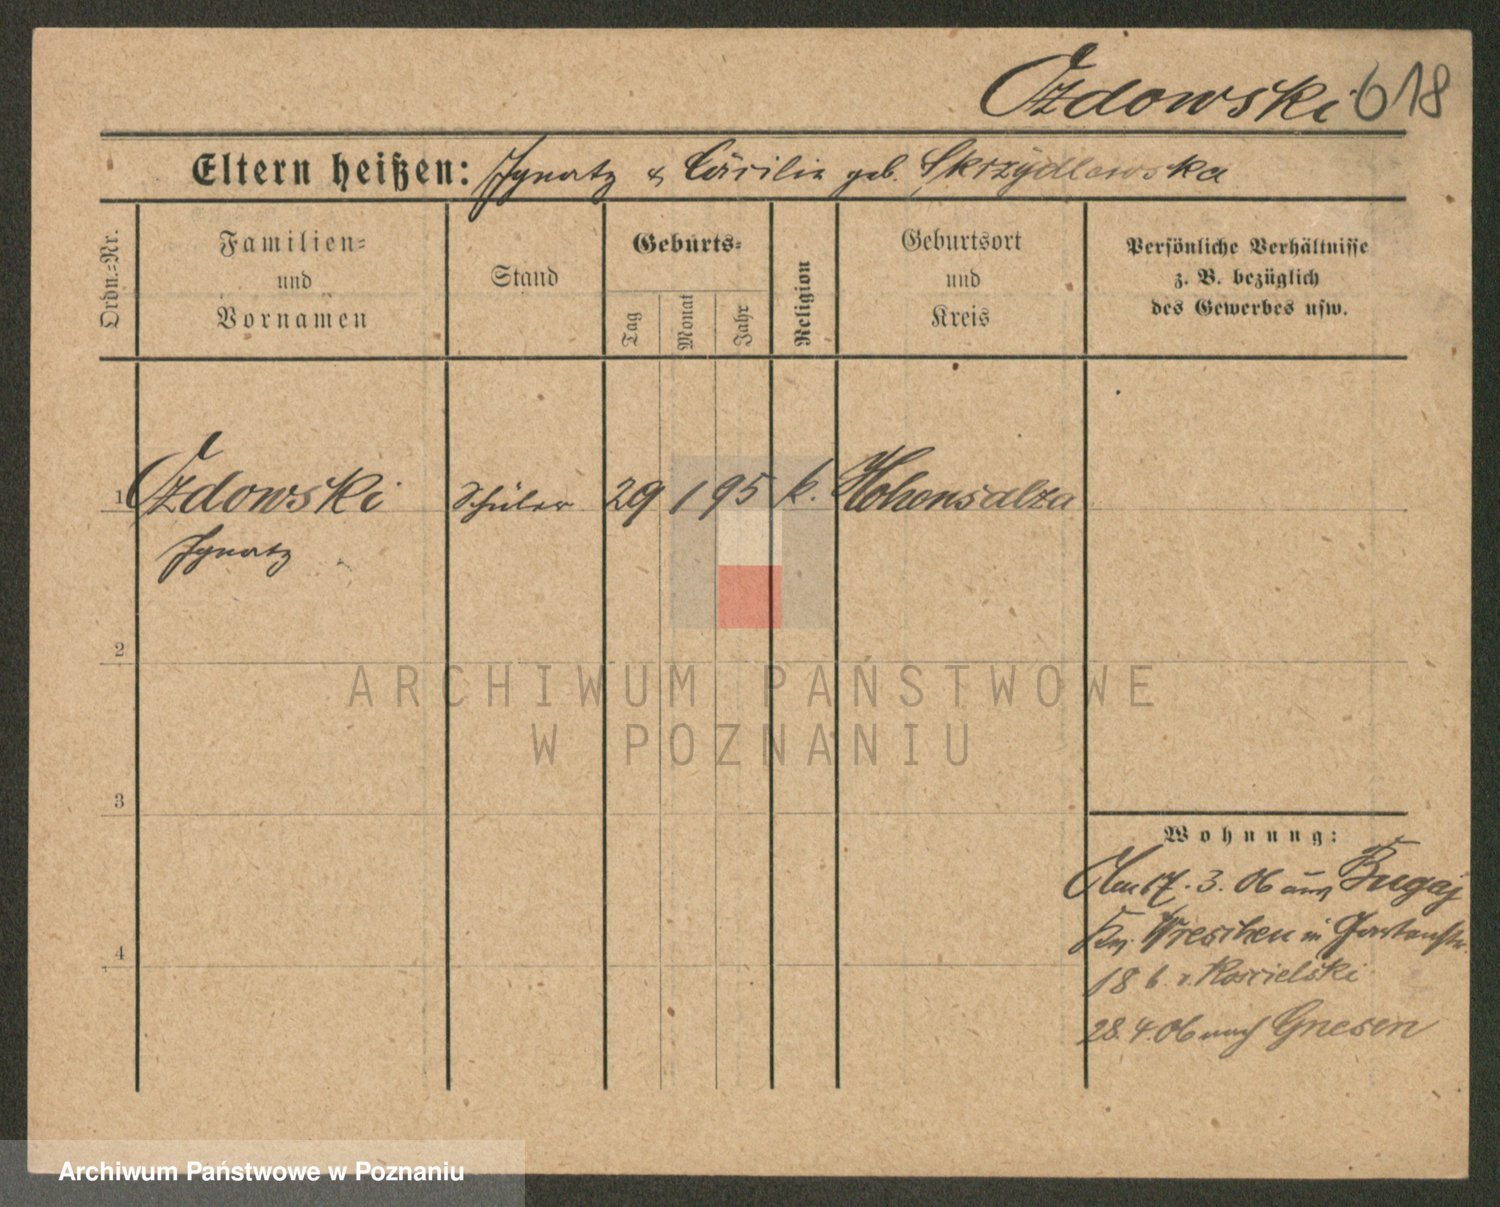 Ozdowski 618
Eltern heißen: Ignatz & Cäcilie geb. Skrzydlewska
Ordn.=Nr.
Familien=
und
Vornamen
Stand
Geburts=
Tag
Monat
Jahr
Religion
Geburtsort
und
Kreis
Persönliche Verhältnisse
z. B. bezüglich
des Gewerbes usw.
1 Ozdowski Schüler 29 1 95 k. Hohensalza
Ignatz
2
ARCHIWUM PAŃSTWOWE
W POZNANIU
3
Wohnung:
Am 17. 3. 06 aus Bugaj
Kr. Wreschen in Gartenstr.
4
18 b. v. Koscielski
28. 4. 06 nach Gnesen
Archiwum Państwowe w Poznaniu